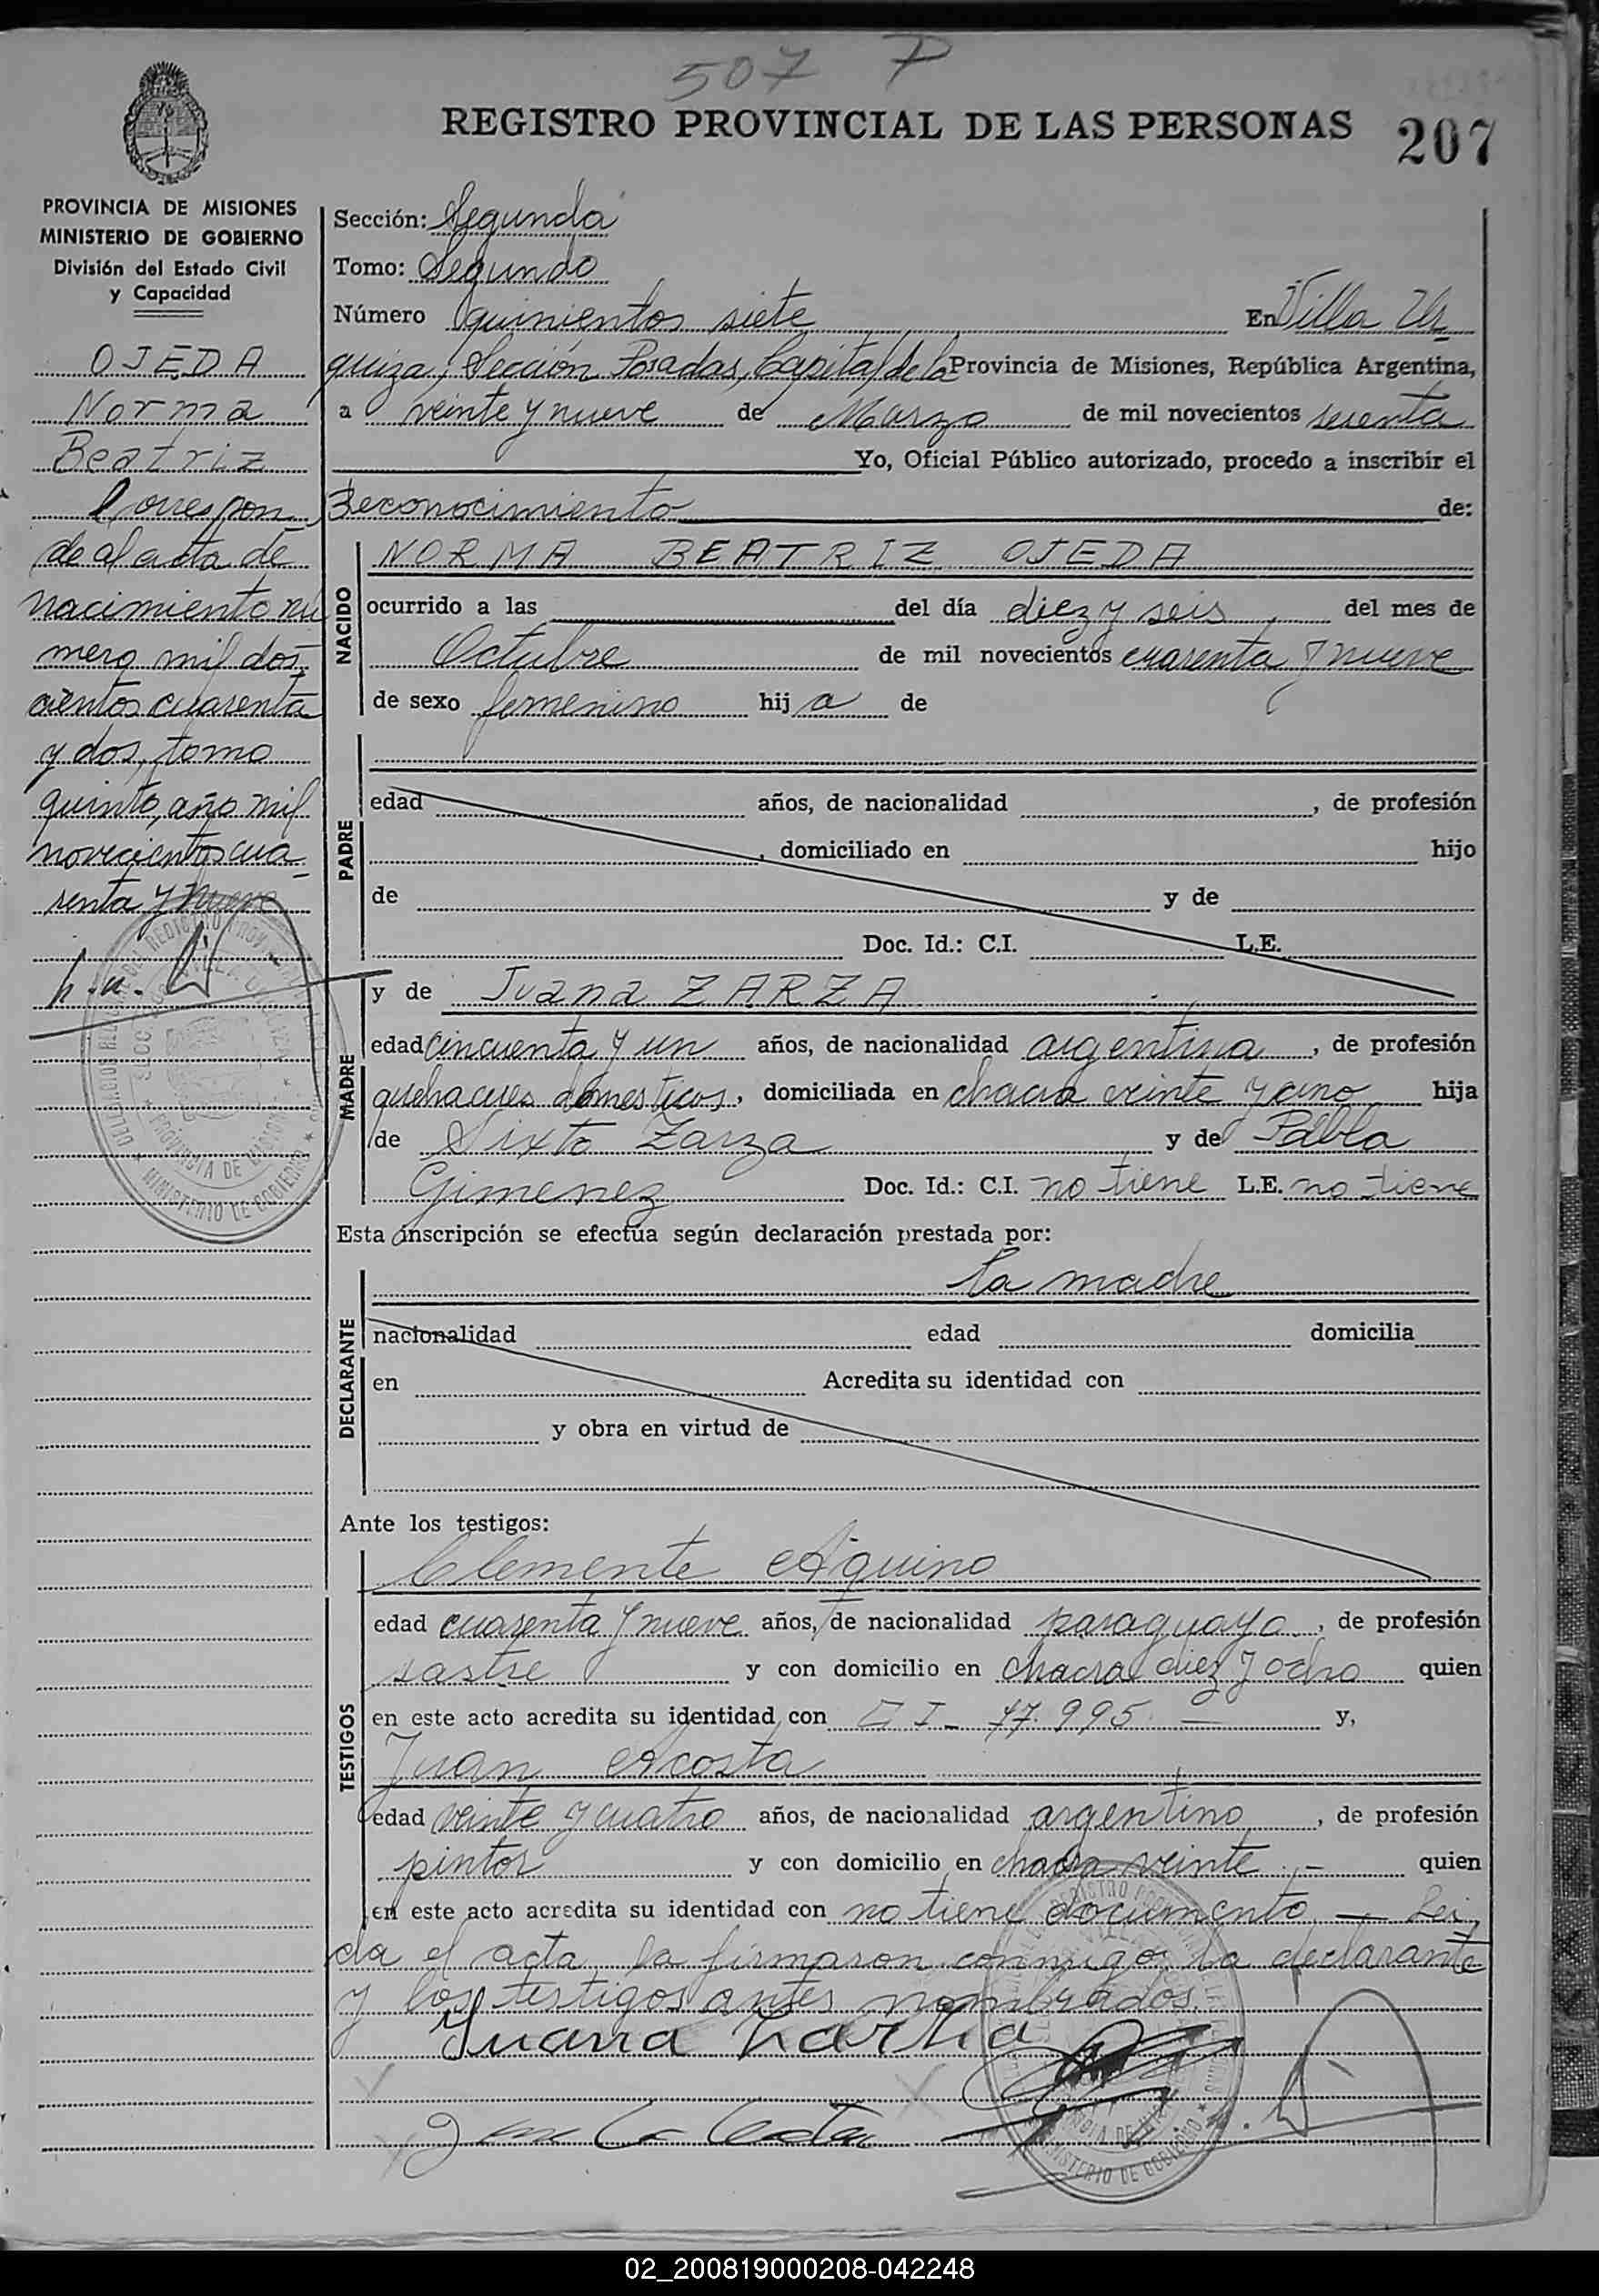 507 P
REGISTRO PROVINCIAL DE LAS PERSONAS 207
PROVINCIA DE MISIONES
MINISTERIO DE GOBIERNO
División del Estado Civil
y Capacidad
OJEDA
Norma
Beatriz
Correspon
de al acta de
nacimiento nú
mero mil dos
cientos cuarenta
y dos, tomo
quinto, año mil
novecientos cua
renta y nueve
Sección: Segunda
Tomo: Segundo
Número quinientos siete En Villa Ur
quiza, Sección Posadas, Capital de la Provincia de Misiones, República Argentina,
a veinte y nueve de Marzo de mil novecientos sesenta
Yo, Oficial Público autorizado, procedo a inscribir el
Reconocimiento de:
NACIDO
NORMA BEATRIZ OJEDA
ocurrido a las del día diez y seis del mes de
Octubre de mil novecientos cuarenta y nueve
de sexo femenino hij a de
PADRE
edad años, de nacionalidad , de profesión
, domiciliado en hijo
de y de
Doc. Id.: C.I. L.E.
MADRE
y de Juana ZARZA
edad cincuenta y un años, de nacionalidad argentina , de profesión
quehaceres domesticos, domiciliada en chacra veinte y cinco hija
de Sixto Zarza y de Pabla
Gimenez Doc. Id.: C.I. no tiene L.E. no tiene
Esta inscripción se efectúa según declaración prestada por:
la madre
DECLARANTE
nacionalidad edad domicilia
en Acredita su identidad con
y obra en virtud de
Ante los testigos:
TESTIGOS
Clemente Aquino
edad cuarenta y nueve años, de nacionalidad paraguayo , de profesión
sastre y con domicilio en chacra diez y ocho quien
en este acto acredita su identidad con C I - 77.995 — y,
Juan Acosta
edad veinte y cuatro años, de nacionalidad argentino , de profesión
pintor y con domicilio en chacra veinte .- quien
en este acto acredita su identidad con no tiene documento — Lei
da el acta, la firmaron conmigo, la declarante
y los testigos antes nombrados.
Juana
MINISTERIO DE GOBIERNO
02_200819000208-042248